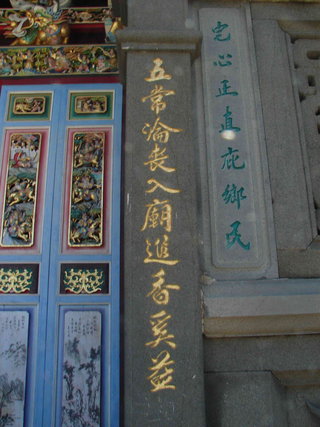 宅心正直庇鄉民
五常淪喪入廟進香奚益